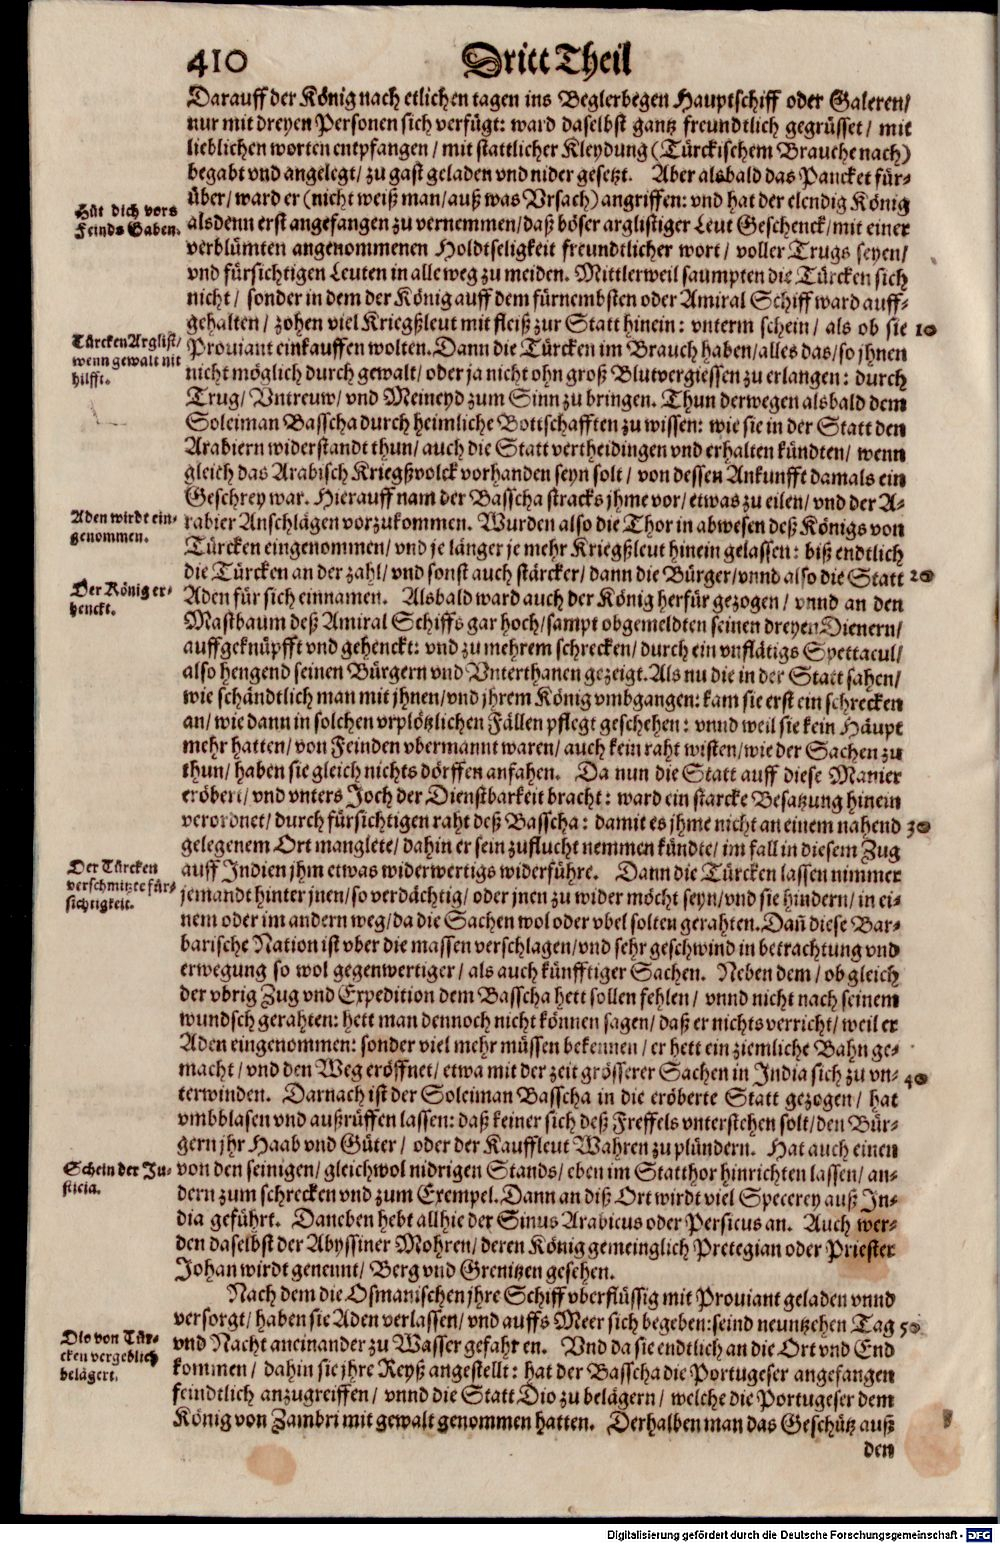 410
Dritt Theil
Darauff der König nach etlichen tagen ins Beglerbegen Hauptschiff oder Galeren/
nur mit dreyen Personen sich verfügt: ward daselbst gantz freundtlich gegrüsset/ mit
lieblichen worten entpfangen/ mit stattlicher Kleydung (Türckischem Brauche nach)
begabt vnd angelegt/ zu gast geladen vnd nider gesetzt. Aber alsbald das Pancket für-
über/ ward er (nicht weiß man/ auß was Vrsach) angriffen: vnd hat der elendig König
Hüt dich vors
Feinds Gaben.
alsdenn erst angefangen zu vernemmen/ daß böser arglistiger Leut Geschenck/ mit einer
verblümten angenommenen Holdtseligkeit freundtlicher wort/ voller Trugs seyen/
vnd fürsichtigen Leuten in alleweg zu meiden. Mittlerweil saumpten die Türcken sich
nicht/ sonder in dem der König auff dem fürnembsten oder Amiral Schiff ward auff-
gehalten/ zohen viel Kriegßleut mit fleiß zur Statt hinein: vnterm schein/ als ob sie 10
Türcken Arglist/
wenn gewalt nit
hilfft.
Prouiant einkauffen wolten. Dann die Türcken im Brauch haben/ alles das/ so jhnen
nicht möglich durch gewalt/ oder ja nicht ohn groß Blutvergiessen zu erlangen: durch
Trug/ Vntreuw/ vnd Meineyd zum Sinn zu bringen. Thun derwegen alsbald dem
Soleiman Basscha durch heimliche Bottschafften zu wissen: wie sie in der Statt den
Arabiern widerstandt thun/ auch die Statt vertheidingen vnd erhalten kündten/ wenn
gleich das Arabisch Kriegßvolck vorhanden seyn solt/ von dessen Ankunfft damals ein
Geschrey war. Hierauff nam der Basscha stracks jhme vor/ etwas zu eilen/ vnd der A-
Aden wirdt ein-
genommen.
rabier Anschlägen vorzukommen. Wurden also die Thor in abwesen deß Königs von
Türcken eingenommen/ vnd je länger je mehr Kriegßleut hinein gelassen: biß endtlich
die Türcken an der zahl/ vnd sonst auch stärcker/ dann die Bürger/ vnnd also die Statt 20
Der König er-
henckt.
Aden für sich einnamen. Alsbald ward auch der König herfür gezogen/ vnnd an den
Mastbaum deß Amiral Schiffs gar hoch/ sampt obgemeldten seinen dreyen Dienern/
auffgeknüpfft vnd gehenckt: vnd zu mehrem schrecken/ durch ein vnflätigs Spettacul/
also hengend seinen Bürgern vnd Vnterthanen gezeigt. Als nu die in der Statt sahen/
wie schändtlich man mit jhnen/ vnd jhrem König vmbgangen: kam sie erst ein schrecken
an/ wie dann in solchen vrplötzlichen Fällen pflegt geschehen: vnnd weil sie kein Häupt
mehr hatten/ von Feinden vbermannt waren/ auch kein raht wisten/ wie der Sachen zu
thun/ haben sie gleich nichts dörffen anfahen. Da nun die Statt auff diese Manier
eröbert/ vnd vnters Joch der Dienstbarkeit bracht: ward ein starcke Besatzung hinein
verordnet/ durch fürsichtigen raht deß Basscha: damit es jhme nicht an einem nahend 30
gelegenem Ort manglete/ dahin er sein zuflucht nemmen kündte/ im fall in diesem Zug
Der Türcken
verschmitzte für-
sichtigkeit.
auff Indien jhm etwas widerwertigs widerführe. Dann die Türcken lassen nimmer
jemandt hinter jnen/ so verdächtig/ oder jnen zu wider möcht seyn/ vnd sie hindern/ in ei-
nem oder im andern weg/ da die Sachen wol oder vbel solten gerahten. Dañ diese Bar-
barische Nation ist vber die massen verschlagen/ vnd sehr geschwind in betrachtung vnd
erwegung so wol gegenwertiger/ als auch künfftiger Sachen. Neben dem/ ob gleich
der vbrig Zug vnd Expedition dem Basscha hett sollen fehlen/ vnnd nicht nach seinem
wundsch gerahten: hett man dennoch nicht können sagen/ daß er nichts verricht/ weil er
Aden eingenommen: sonder viel mehr müssen bekennen/ er hett ein ziemliche Bahn ge-
macht/ vnd den Weg eröffnet/ etwa mit der zeit grösserer Sachen in India sich zu vn- 40
terwinden. Darnach ist der Soleiman Basscha in die eröberte Statt gezogen/ hat
vmbblasen vnd außrüffen lassen: daß keiner sich deß Freffels vnterstehen solt/ den Bür-
gern jhr Haab vnd Güter/ oder der Kauffleut Wahren zu plündern. Hat auch einen
Schein der Ju-
sticia.
von den seinigen/ gleichwol nidrigen Stands/ eben im Statthor hinrichten lassen/ an-
dern zum schrecken vnd zum Exempel. Dann an diß Ort wirdt viel Specerey auß In-
dia geführt. Daneben hebt allhie der Sinus Arabicus oder Persicus an. Auch wer-
den daselbst der Abyssiner Mohren/ deren König gemeinglich Pretegian oder Priester
Johan wirdt genennt/ Berg vnd Grenitzen gesehen.
Nach dem die Osmanischen jhre Schiff vberflüssig mit Prouiant geladen vnnd
versorgt/ haben sie Aden verlassen/ vnd auffs Meer sich begeben: seind neuntzehen Tag 50
Dio von Tür-
cken vergeblich
belägert.
vnd Nacht aneinander zu Wasser gefahren. Vnd da sie endtlich an die Ort vnd End
kommen/ dahin sie jhre Reyß angestellt: hat der Basscha die Portugeser angefangen
feindtlich anzugreiffen/ vnnd die Statt Dio zu belägern/ welche die Portugeser dem
König von Zambri mit gewalt genommen hatten. Derhalben man das Geschütz auß
den
Digitalisierung gefördert durch die Deutsche Forschungsgemeinschaft - DFG